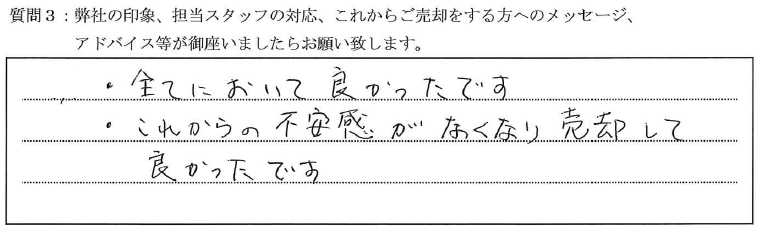 質問３：弊社の印象、担当スタッフの対応、これからご売却をする方へのメッセージ、
アドバイス等が御座いましたらお願い致します。
・全てにおいて良かったです
・これからの不安感がなくなり売却して
良かったです